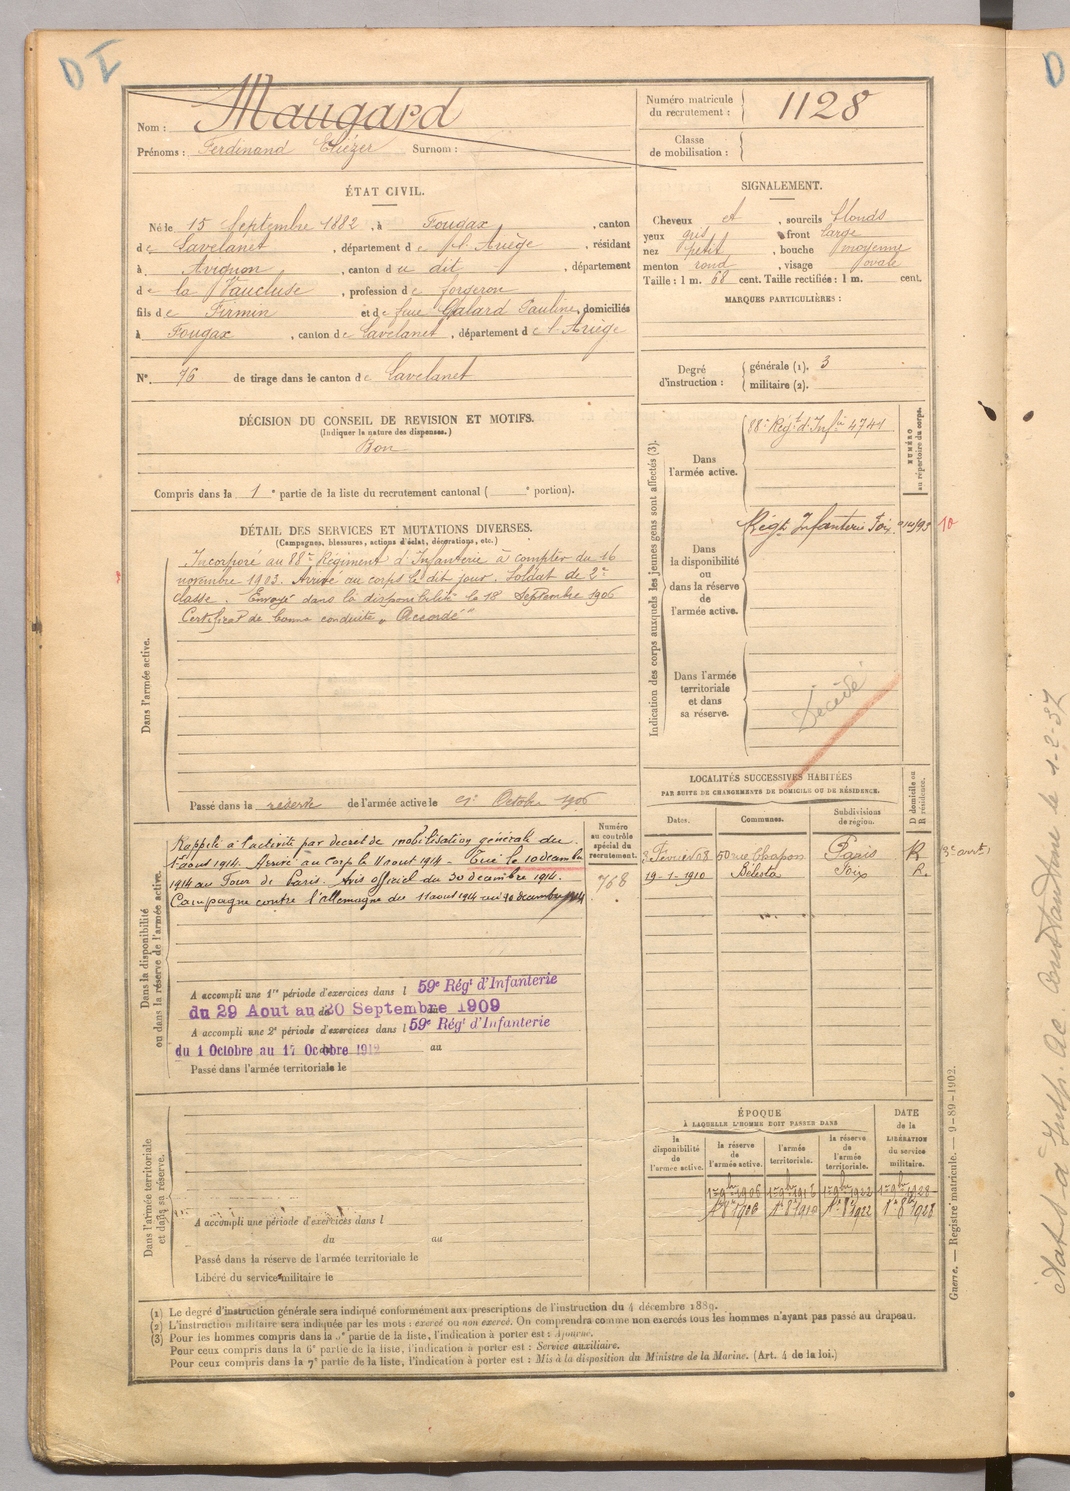 D I
Nom : Maugard
Prénoms : Ferdinand Eliézer Surnom :
Numéro matricule du recrutement : 1128
Classe de mobilisation :
ÉTAT CIVIL.
Né le 15 Septembre 1882, à Fougax, canton
de Lavelanet, département de l'Ariège, résidant
à Avignon, canton du dit, département
de la Vaucluse, profession de forgeron
fils de Firmin et de feue Galard Pauline, domiciliés
à Fougax, canton de Lavelanet, département de l'Ariège
N° 76 de tirage dans le canton de Lavelanet
SIGNALEMENT.
Cheveux et, sourcils blonds
yeux gris, front large
nez petit, bouche moyenne
menton rond, visage ovale
Taille : 1 m. 68 cent. Taille rectifiée : 1 m. cent.
MARQUES PARTICULIÈRES :
Degré d'instruction : générale (1). 3
militaire (2).
DÉCISION DU CONSEIL DE REVISION ET MOTIFS.
(Indiquer la nature des dispenses.)
Bon
Compris dans la 1e partie de la liste du recrutement cantonal ( e portion).
DÉTAIL DES SERVICES ET MUTATIONS DIVERSES.
(Campagnes, blessures, actions d'éclat, décorations, etc.)
Dans l'armée active.
Incorporé au 88e Régiment d'Infanterie à compter du 16
novembre 1903. Arrivé au corps le dit jour. Soldat de 2e
classe. Envoyé dans la disponibilité le 18 Septembre 1906
Certificat de bonne conduite "Accordé"
Passé dans la réserve de l'armée active le 1er Octobre 1906
Indication des corps auxquels les jeunes gens sont affectés (3).
NUMÉRO au répertoire du corps.
Dans l'armée active.
88e Régt d'Infie 4741
Dans la disponibilité ou dans la réserve de l'armée active.
Régt Infanterie Foix
10
Dans l'armée territoriale et dans sa réserve.
Décédé
Dans la disponibilité ou dans la réserve de l'armée active.
Numéro au contrôle spécial du recrutement.
768
Rappelé à l'activité par décret de mobilisation générale du
1er aout 1914. Arrivé au Corps le 11 aout 1914 - Tué le 10 décembre
1914 au Four de Paris. Avis officiel du 30 décembre 1914.
Campagne contre l'Allemagne du 11 aout 1914 au 10 décembre 1914
A accompli une 1re période d'exercices dans l 59e Régt d'Infanterie
du 29 Aout au 20 Septembre 1909
A accompli une 2e période d'exercices dans l 59e Régt d'Infanterie
du 1 Octobre au 17 Octobre 1912 au
Passé dans l'armée territoriale le
LOCALITÉS SUCCESSIVES HABITÉES
PAR SUITE DE CHANGEMENTS DE DOMICILE OU DE RÉSIDENCE.
Dates. Communes. Subdivisions de région. D domicile ou R résidence.
Février 08 50 rue Chapon Paris R (3e arrt)
19-1-1910 Bélesta Foix R.
Dans l'armée territoriale et dans sa réserve.
A accompli une période d'exercices dans l
du au
Passé dans la réserve de l'armée territoriale le
Libéré du service militaire le
ÉPOQUE
À LAQUELLE L'HOMME DOIT PASSER DANS
DATE de la LIBÉRATION du service militaire.
la disponibilité de l'armée active. la réserve de l'armée active. l'armée territoriale. la réserve de l'armée territoriale.
1er 9bre 1906 1er 9bre 1916 1er 9bre 1922 1er 9bre 1928
1er 8bre 1906 1er 8bre 1916 1er 8bre 1922 1er 8bre 1928
(1) Le degré d'instruction générale sera indiqué conformément aux prescriptions de l'instruction du 4 décembre 1889.
(2) L'instruction militaire sera indiquée par les mots : exercé ou non exercé. On comprendra comme non exercés tous les hommes n'ayant pas passé au drapeau.
(3) Pour les hommes compris dans la 5e partie de la liste, l'indication à porter est : Ajourné.
Pour ceux compris dans la 6e partie de la liste, l'indication à porter est : Service auxiliaire.
Pour ceux compris dans la 7e partie de la liste, l'indication à porter est : Mis à la disposition du Ministre de la Marine. (Art. 4 de la loi.)
Guerre. — Registre matricule. — 9-89-1902.
D
Constantine le 1-2-37